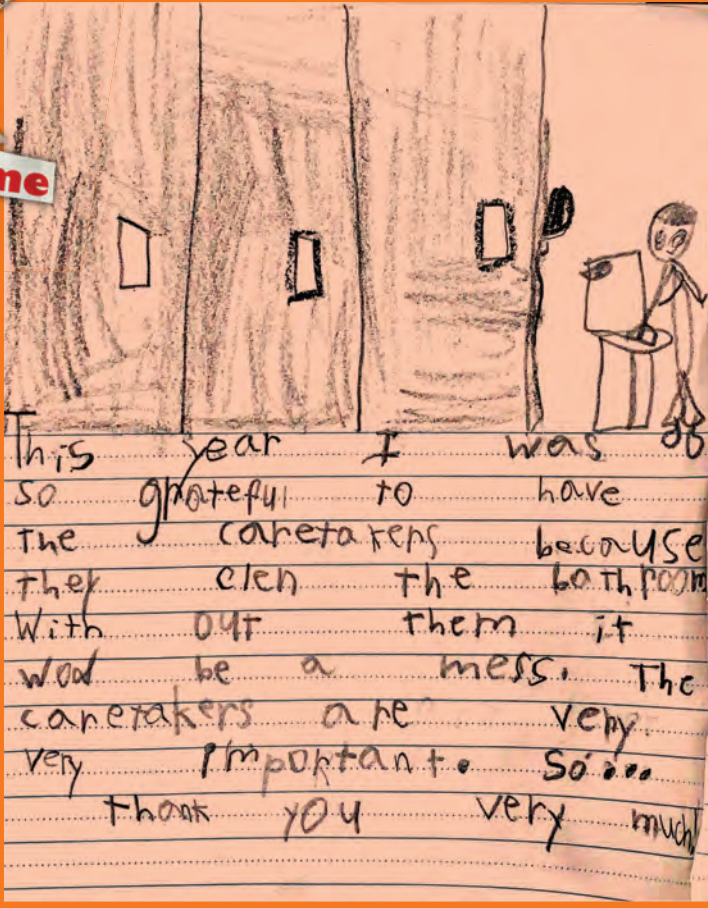 me
This year I was
so grateful to have
the caretakers because
they clen the bathroom
With out them it
wod be a mess. The
caretakers are very
very important. So...
thank you very much!